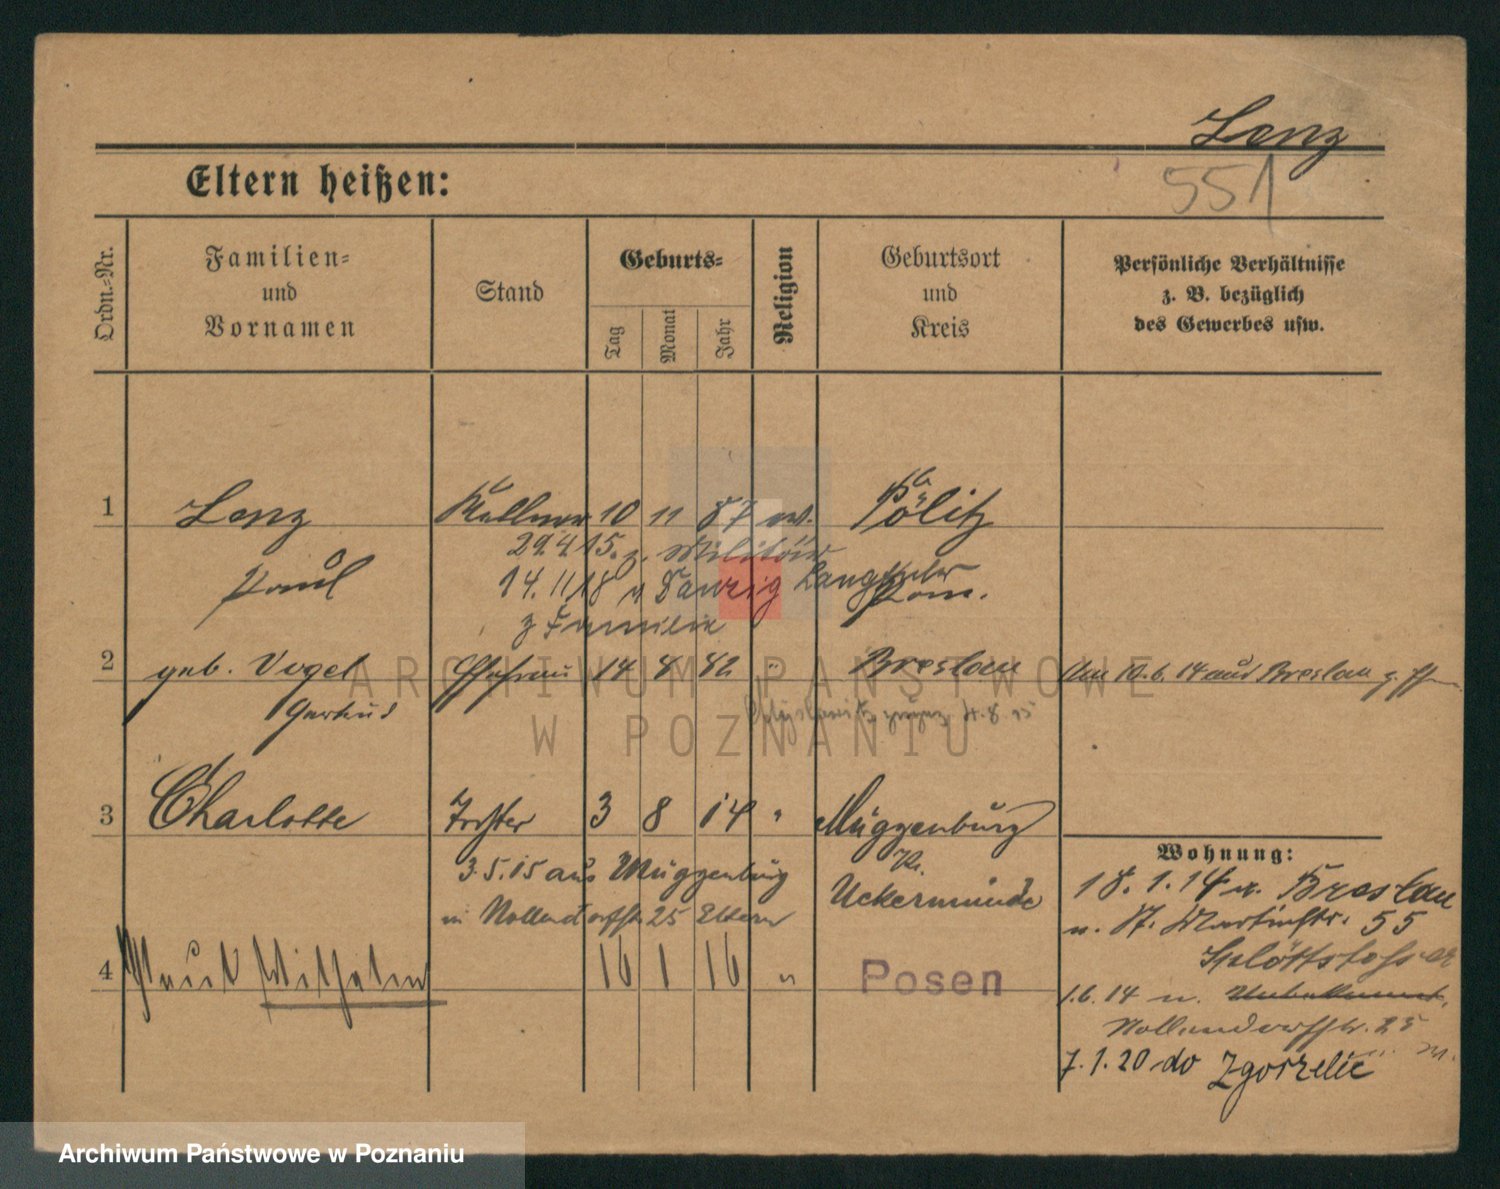 Lenz
551
Eltern heißen:
Ordn.-Nr.
Familien-
und
Vornamen
Stand
Geburts-
Tag
Monat
Jahr
Religion
Geburtsort
und
Kreis
Persönliche Verhältnisse
z. B. bezüglich
des Gewerbes usw.
1 Lenz Kellner 10 11 87 ev. Pölitz
29.4.15. z. Militär
Paul 14.11.18 v Danzig
z Familie
2 geb. Vogel Ehefrau 14 8 82 " Breslau
Gertrud
3 Charlotte Tochter 3 8 14 " Müggenburg
Kr.
3.5.15 aus Müggenburg Uckermünde
in Nollendorfstr 25 Eltern
4 Paul Wilhelm 16 1 16 " Posen
Wohnung:
18.1.14 v. Breslau
n. St. Martinstr. 55
1.6.14 n. Unbekannt,
Nollendorfstr. 25
7.1.20 do Zgorzelic
ARCHIWUM PAŃSTWOWE
W POZNANIU
Archiwum Państwowe w Poznaniu